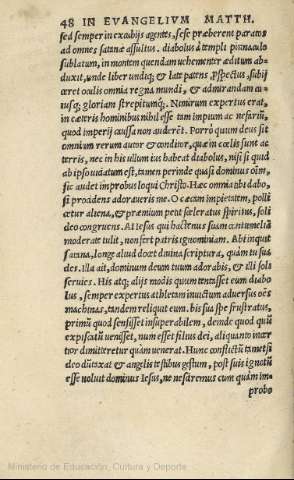 48 IN EVANGELIVM MATTH.
sed semper in excubijs agentes, sese præberent paratos
ad omnes satanæ assultus. diabolus à templi pinnaculo
sublatum, in montem quendam uehementer æditum ab-
duxit, unde liber undiq; & late patens, pspectus, subij
ceret oculis omnia regna mundi, & admirandam eo-
rusq; gloriam strepitumq;. Nimirum expertus erat,
in cæteris hominibus nihil esse tam impium ac nefariũ,
quod imperij caussa non auderẽt. Porrò quum deus sit
omnium rerum autor & conditor, quæ in cœlis sunt ac
terris, nec in his ullum ius habeat diabolus, nisi si quid
ab ipso uidatum est, tamen perinde quasi dominus oim̃,
sic audet improbus loqui Christo. Hæc omnia tibi dabo,
si procidens adoraueris me. O cæcam impietatem, polli
cetur aliena, & præmium petit scæleratus spiritus, soli
deo congruens. At Iesus qui hactenus suam contumeliã
moderate tulit, non fert patris ignominiam. Abi inquit
satana, longe aliud docet diuina scriptura, quàm tu sua
des. Illa ait, dominum deum tuum adorabis, & illi soli
seruies. His atq; alijs modis quum tentasset eum diabo
lus, semper expertus athletam inuictum aduersus oẽs
machinas, tandem reliquit eum. bis sua spe frustratus,
primũ quod sensisset insuperabilem, deinde quod quũ
expiscatũ uenisset, num esset filius dei, aliquanto incer
tior dimitteretur quàm uenerat. Hunc conflictũ tametsi
deo dũtaxat & angelis testibus gestum, post suis ignotũ
esse noluit dominus Iesus, ne nesciremus cum quàm im-
probo
Ministerio de Educación, Cultura y Deporte